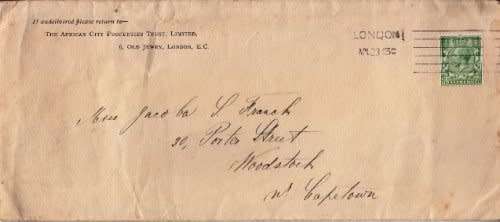 If undelivered please return to—
THE AFRICAN CITY PROPERTIES TRUST, LIMITED,
6, OLD JEWRY, LONDON, E.C.
LONDON
Miss Jacoba S French
30, Porter Street
Woodstock
Nr Capetown